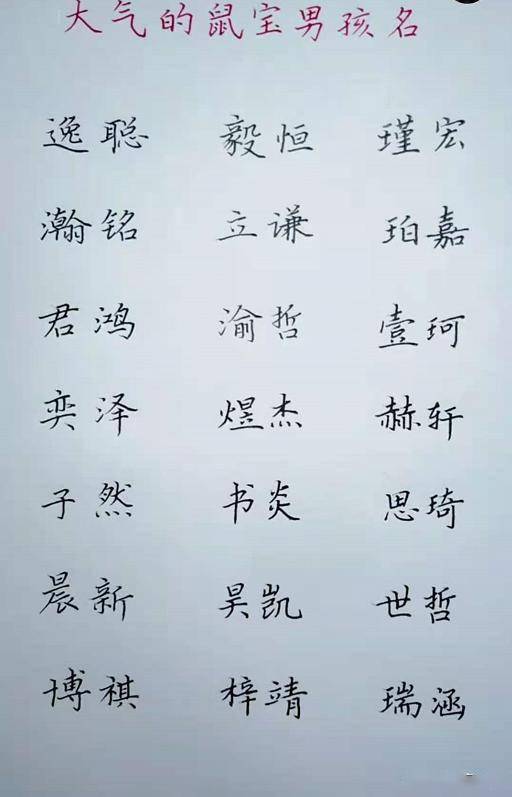 大气的鼠宝男孩名
逸聪 毅恒 瑾宏
瀚铭 立谦 珀嘉
君鸿 渝哲 壹珂
奕泽 煜杰 赫轩
子然 书炎 思琦
晨新 昊凯 世哲
博祺 梓靖 瑞涵